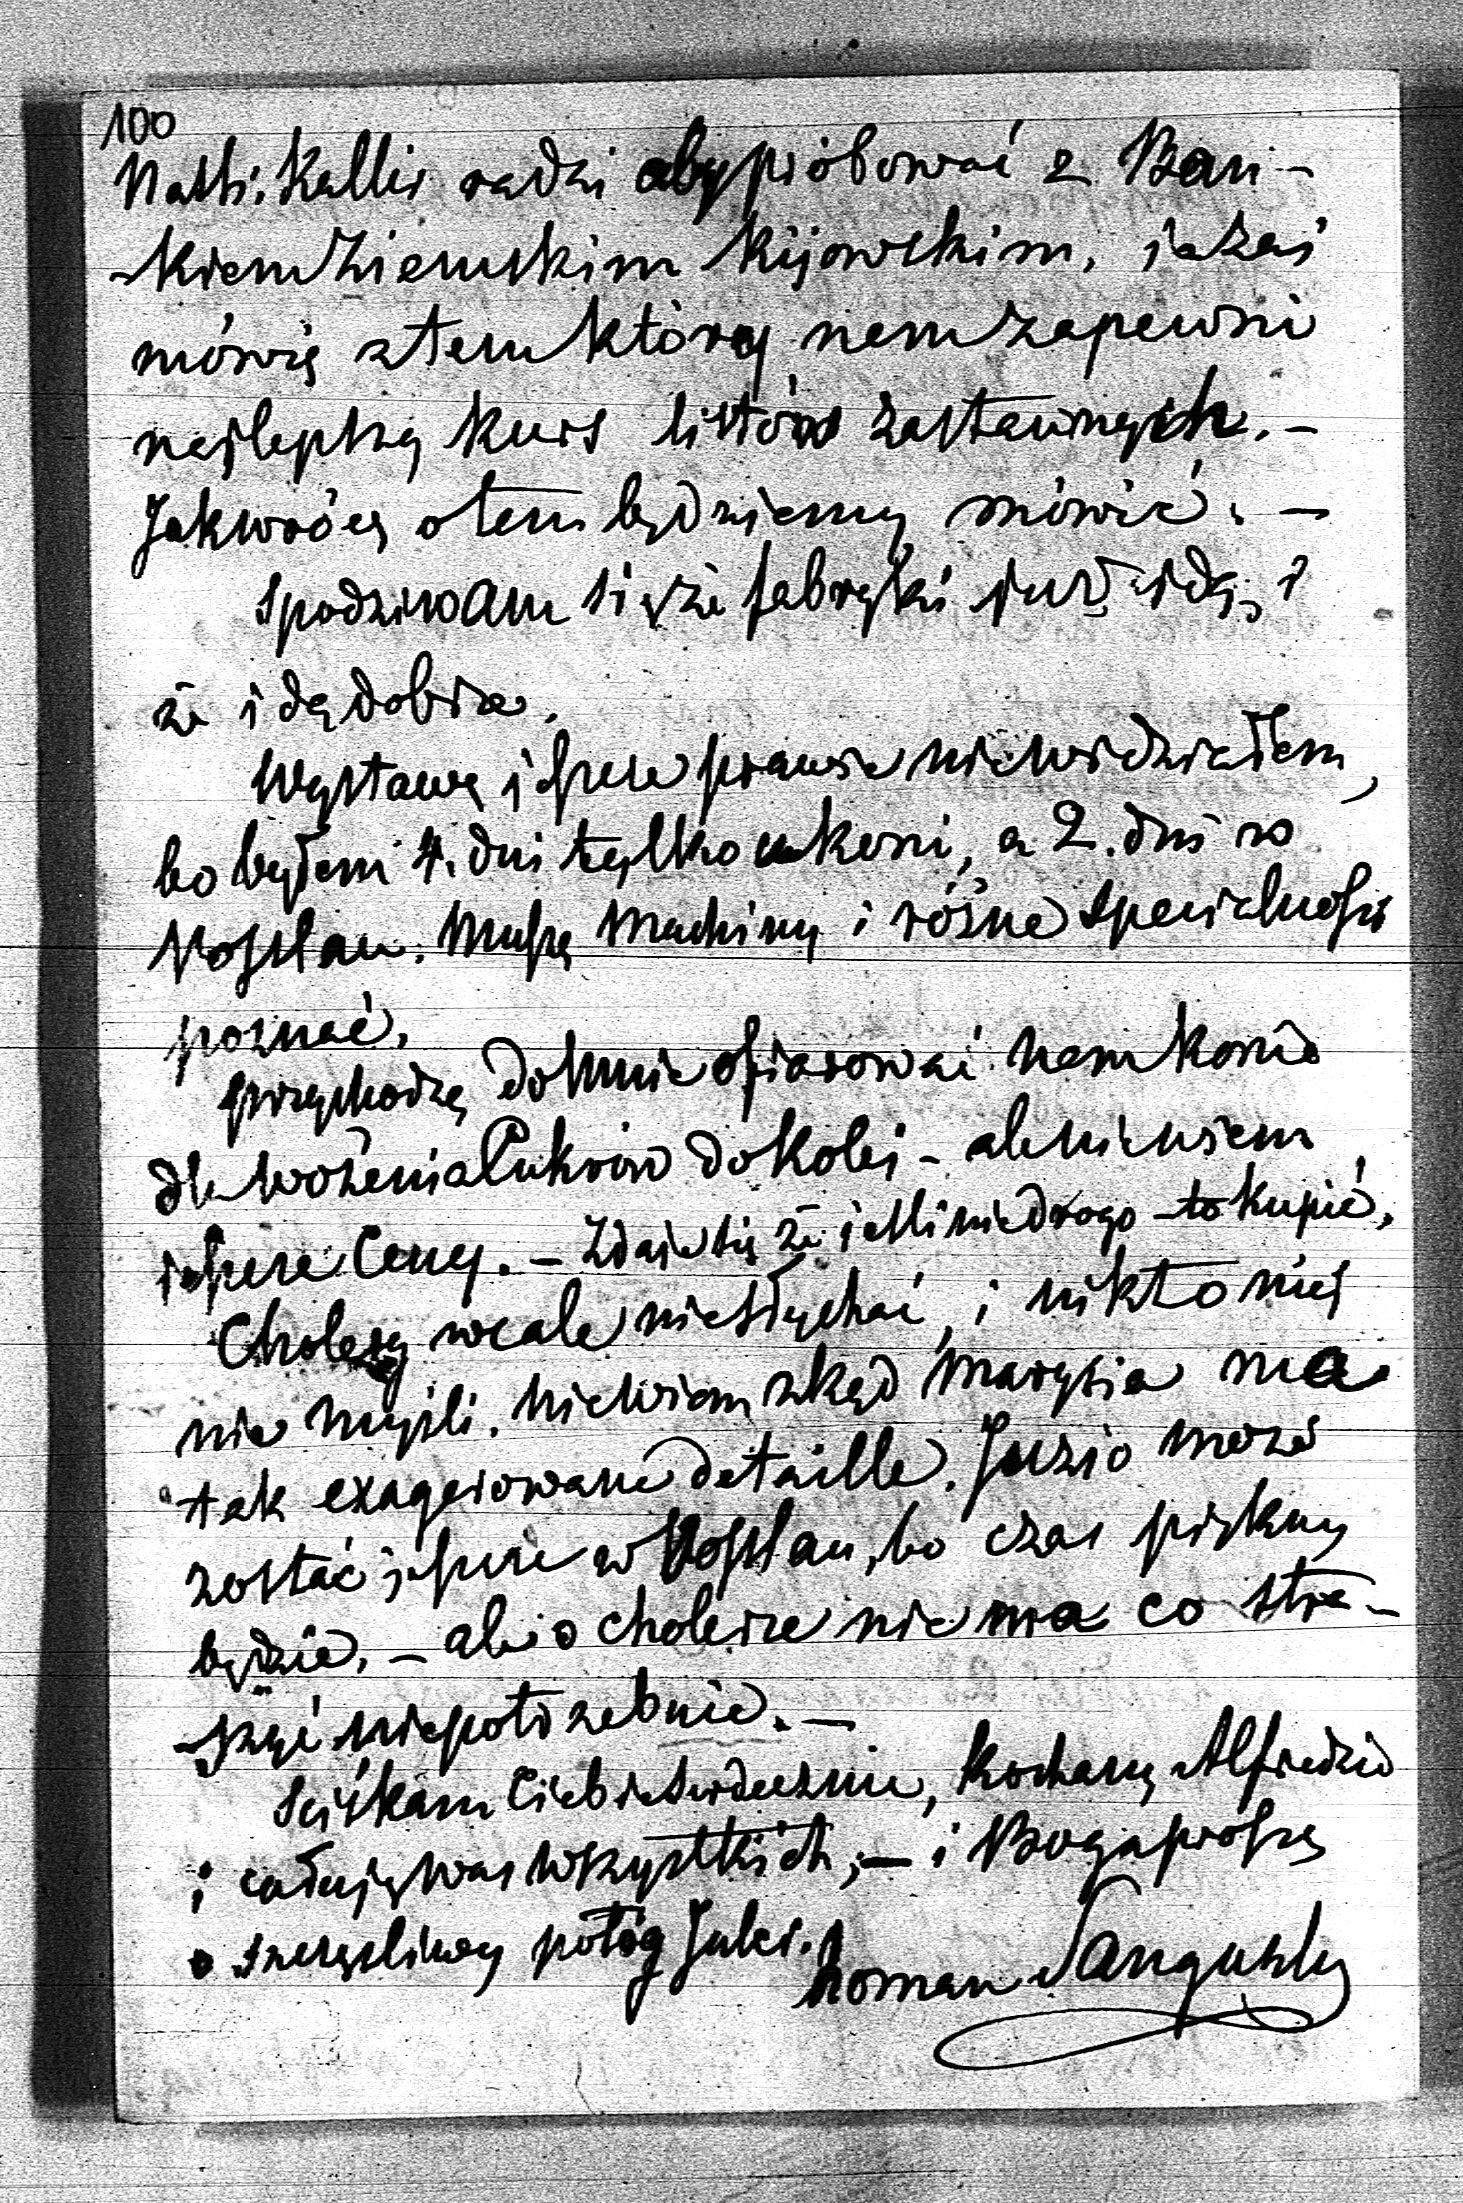 100
Nath. Kallir radzi aby próbować z Ban-
-kiem Ziemskim Kijowskim, ja zaś
mówię z tem który nam zapewni
najlepszy kurs listów zastawnych. -
Jak wrócę o tem będziemy mówić. -
Spodziwam się że fabryki już idą, i
że idą dobrze.
Wystawy jeszcze prawie niewidziałem,
bo byłem 4. dni tylko u koni, a 2. dni w
Vöslau. Muszę Machiny i różne specialności
poznać.
Przychodzą do mnie ofiarować nam konie
dla wożenia Cukrów do Kolei - ale nie wiem
jeszcze Ceny. - Zdaje się że jeśli niedrogo to kupić.
Cholery wcale niesłychać, i nikt o niej
nie myśli. Niewiem zkąd Marysia ma
tak exagerowane detaille. Juzio może
zostać jeszcze w Vöslau, bo czas piękny
będzie, - ale o cholerze nie ma co stra-
-szyć niepotrzebnie. -
Sciskam Ciebie serdecznie, Kochany Alfredzie
i całuję was wszystkich, - i Boga proszę
o szczęśliwy połóg Julci.
Roman Sanguszko